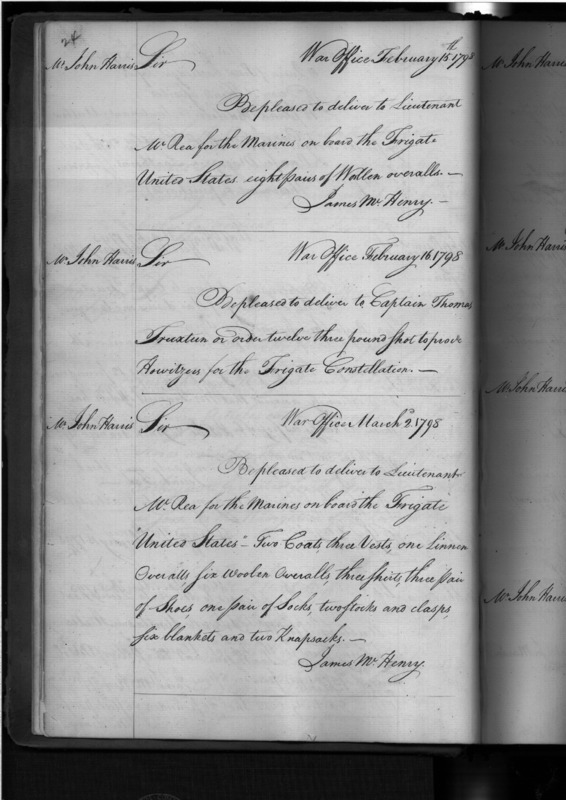 24
Mr. John Harris Sir War Office February 15th 1798
Be pleased to deliver to Lieutenant
Mc. Rea for the Marines on board the Frigate
United States eight pairs of Wollen overalls. —
James Mc. Henry. —
Mr. John Harris Sir War Office February 16 1798
Be pleased to deliver to Captain Thomas
Truxtun or order twelve three pound shot to prove
Howitzers for the Frigate Constellation. —
Mr. John Harris Sir War Office March 2d 1798
Be pleased to deliver to Lieutenant
Mc. Rea for the Marines on board the Frigate
"United States" - Two Coats, three Vests, one Linnen
Overalls six Woolen Overalls, three shirts, three pair
of Shoes, one pair of Socks, two stocks and clasps,
six blankets and two Knapsacks. —
James Mc. Henry.
Mr. John Harri
Mr. John Harri
Mr. John Harri
Mr. John Harri